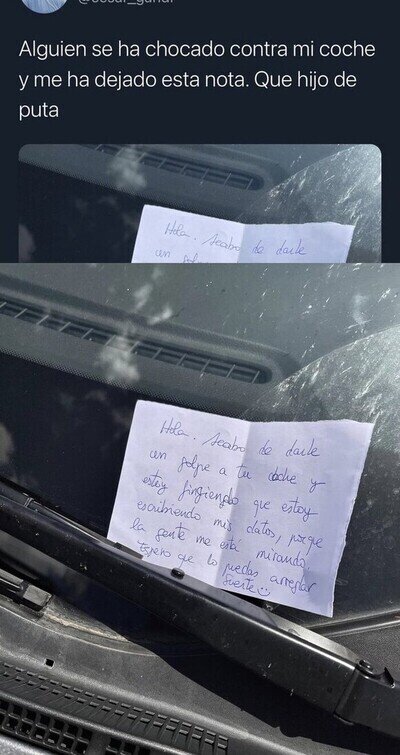 Alguien se ha chocado contra mi coche
y me ha dejado esta nota. Que hijo de
puta
Hola. Acabo de darle
un golpe
Hola. Acabo de darle
un golpe a tu coche y
estoy fingiendo que estoy
escribiendo mis datos, porque
la gente me está mirando.
Espero que lo puedas arreglar
Suerte☺